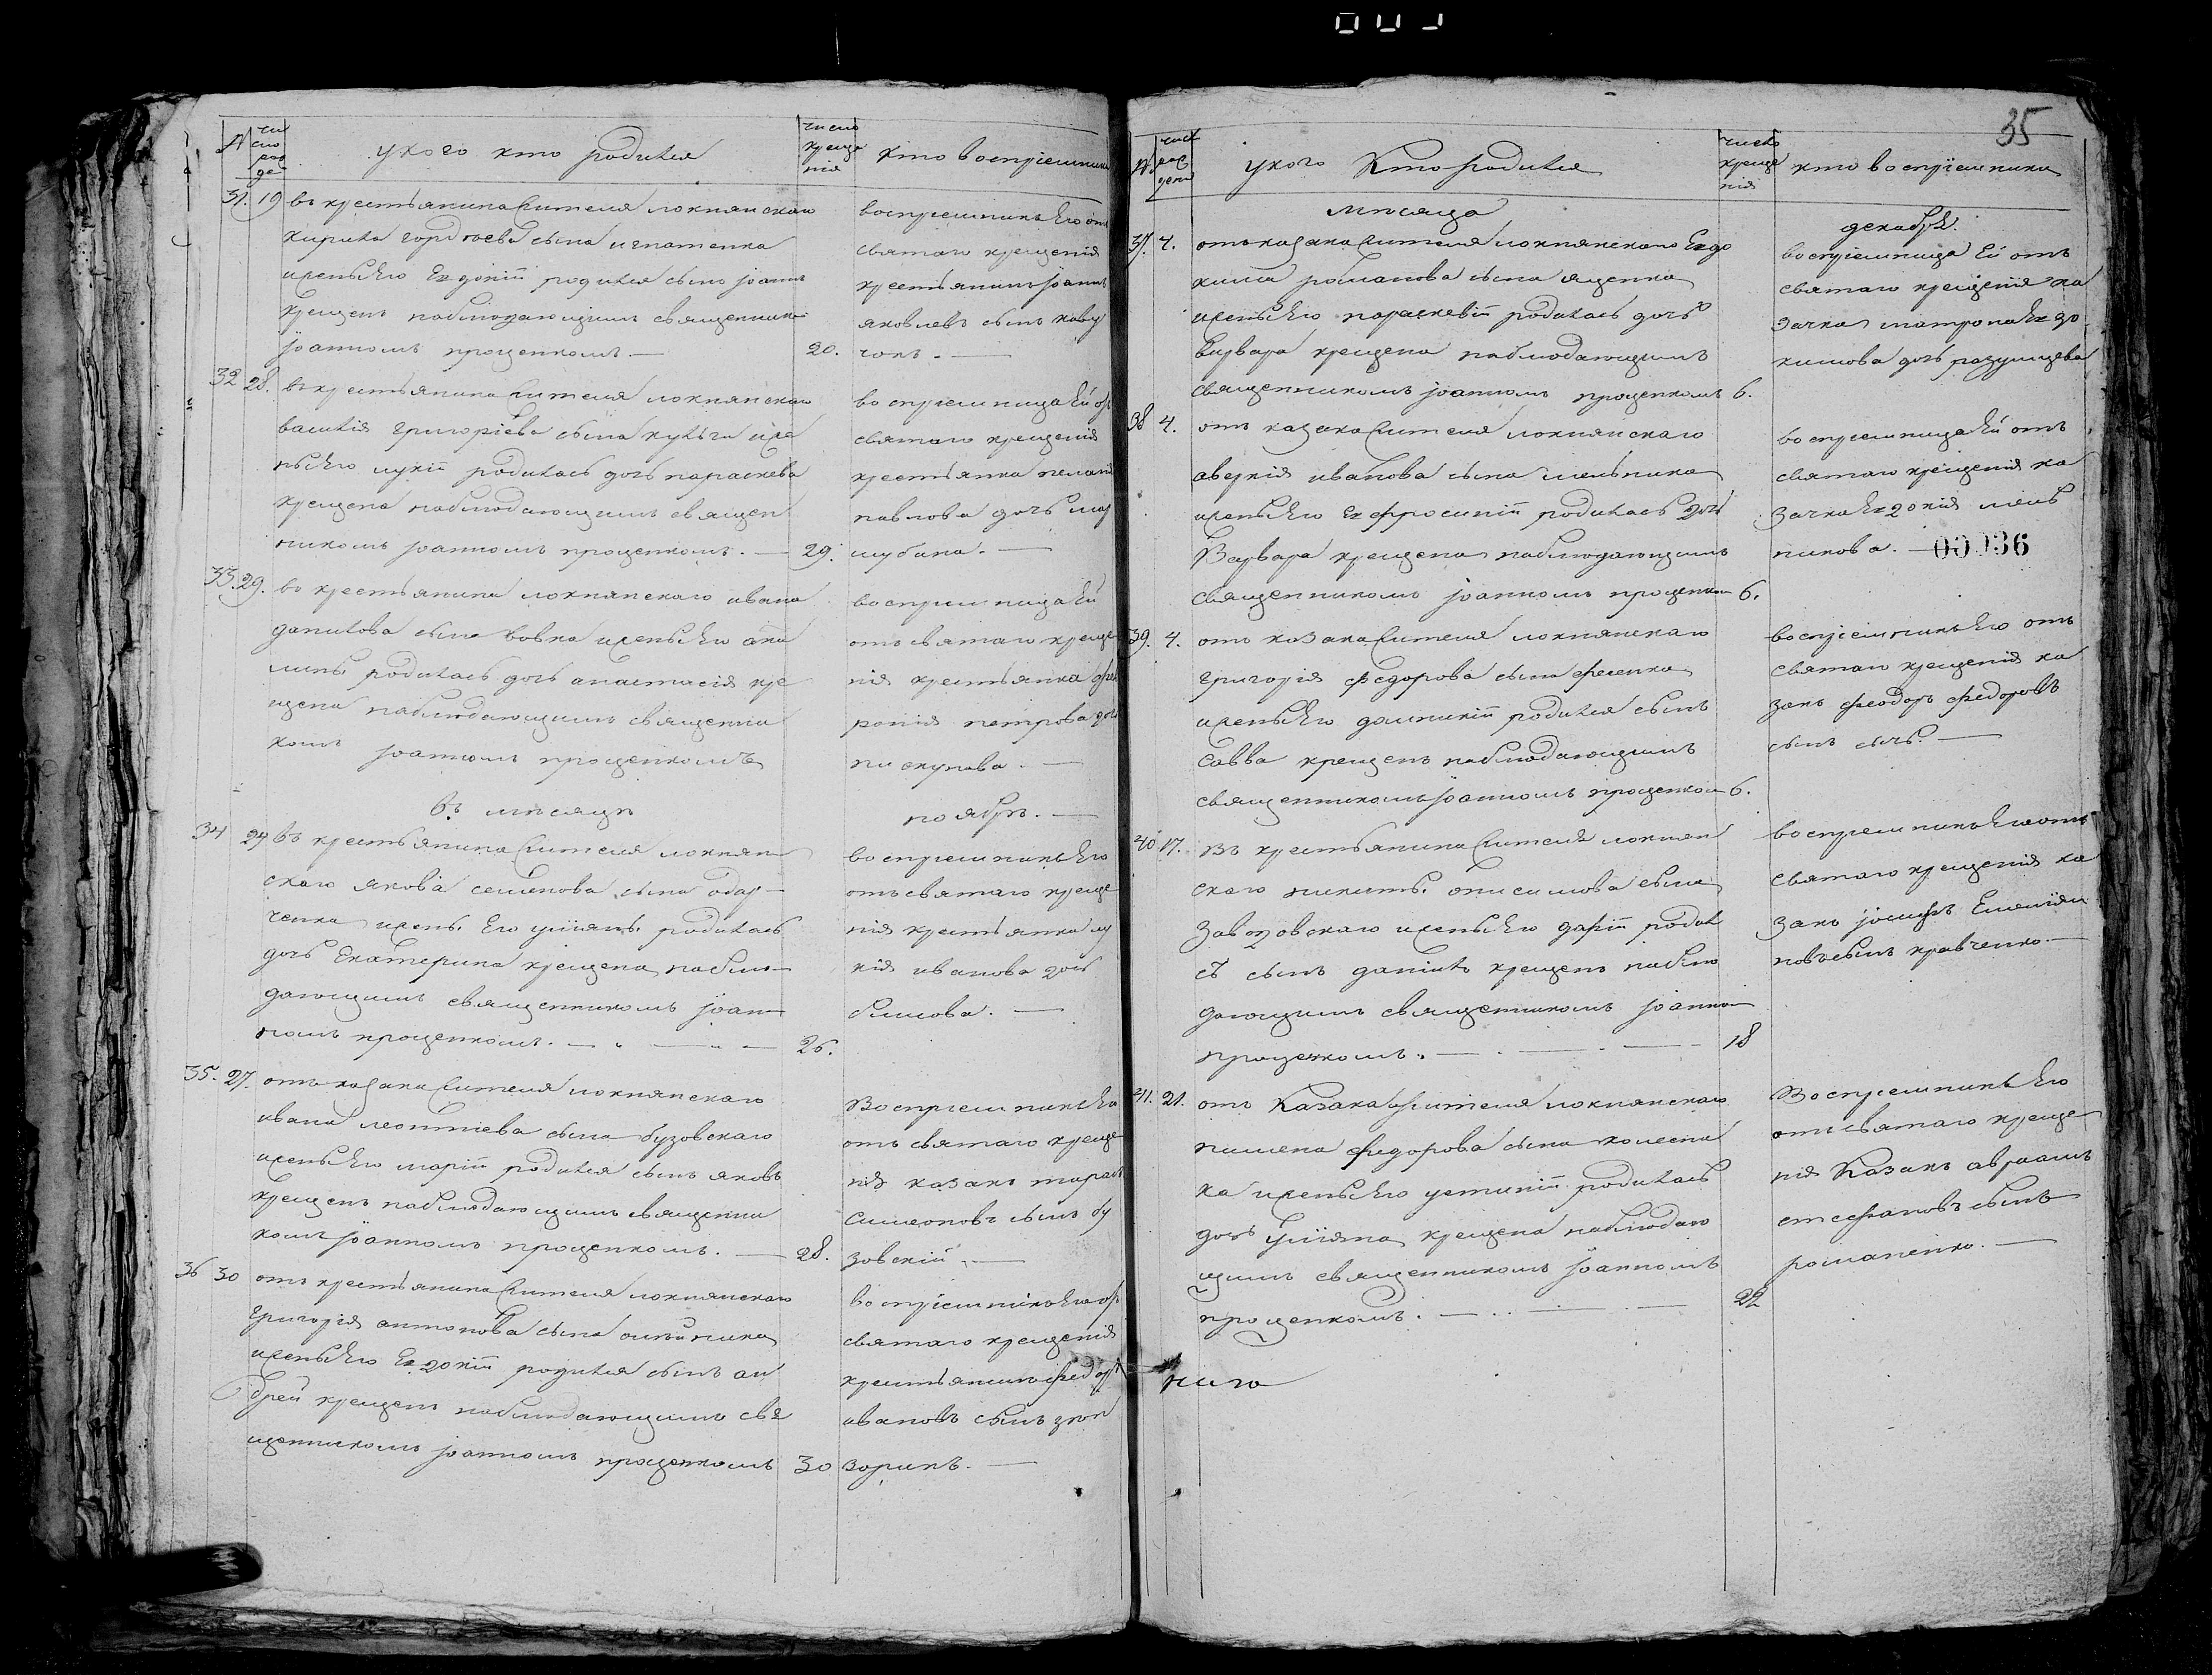 35
№ число рожде
у кого кто родился
число креще нія
кто воспріемники
31. 19 въ крестьянина жителя локнянскаго
кирила гордѣева сына игнатенка
и жены его Евдокіи родился сынъ іоаннъ
крещенъ наблюдающимъ священнико
іоанномъ проценкомъ. — 20.
воспріемникъ его отъ
святаго крещенія
крестьянинъ іоаннъ
яковлевъ сынъ
чокъ. —
32 28. въ крестьянина жителя локнянскаго
василія григоріева сына и же
ны его лукіи родилась дочь параскева
крещена наблюдающимъ священ
никомъ іоанномъ проценкомъ. — 29.
воспріемница ей от
святаго крещенія
крестьянка пелагія
павлова дочь
33. 29. во крестьянина локнянскаго ивана
данилова сына вовка и жены его аки
лины родилась дочь анастасія кре
щена наблюдающимъ священни
комъ іоанномъ проценкомъ
воспріемница ей
отъ святаго креще
нія крестьянка
петрова дочь
пискунова. —
въ мѣсяцѣ ноябрѣ. —
34 24 въ крестьянина жителя локнян
скаго якова семенова сына
ченка и жены его уліяны родилась
дочь Екатерина крещена наблю
дающимъ священникомъ іоан
номъ проценкомъ. — 26.
воспріемникъ его
отъ святаго креще
нія крестьянка лу
кія иванова дочь
климова. —
35. 27. отъ казака жителя локнянскаго
ивана леонтіева сына бузовскаго
и жены его маріи родился сынъ яковъ
крещенъ наблюдающимъ священни
комъ іоанномъ проценкомъ. — 28.
Воспріемникъ его
отъ святаго креще
нія казакъ тарасъ
симеоновъ сынъ бу
зовскій. —
36 30 отъ крестьянина жителя локнянскаго
григорія антонова сына олѣйника
и жены его Евдокіи родился сынъ ан
дрей крещенъ наблюдающимъ свя
щенникомъ іоанномъ проценкомъ 30
воспріемникъ его от
святаго крещенія
крестьянинъ федоръ
ивановъ сынъ
№ число рож дені
у кого Кто родился
число креще нія
кто воспріемники
мѣсяца декабря.
37. 4. отъ казака жителя локнянскаго Евдо
кима романова сына яценка
и жены его параскевіи родилась дочь
варвара крещена наблюдающимъ
священникомъ іоанномъ проценкомъ 6.
воспріемница ей отъ
святаго крещенія ка
зачка матрона Евдо
кимова дочь разумцева
38 4. отъ казака жителя локнянскаго
аверкія иванова сына мельника
и жены его Евфросиніи родилась дочь
Варвара крещена наблюдающимъ
священникомъ іоанномъ проценком 6.
воспріемница ей отъ
святаго крещенія ка
зачка Евдокія мель
никова. —
00036
39. 4. отъ казака жителя локнянскаго
григорія федорова сына фесенка
и жены его домникіи родился сынъ
Савва крещенъ наблюдающимъ
священникомъ іоанномъ проценком 6.
воспріемникъ его отъ
святаго крещенія ка
закъ феодоръ федоровъ
сынъ сычъ. —
40 17. Въ крестьянина жителя локнян
скаго никиты онисимова сына
Завозовскаго и жены его даріи родил
съ сынъ даніилъ крещенъ наблю
дающимъ священникомъ іоанном
проценкомъ. — 18
воспріемникъ его отъ
святаго крещенія ка
закъ іосифъ Емеліян
новъ сынъ кравченко. —
41. 21. отъ Казака жителя локнянскаго
пимена федорова сына колесни
ка и жены его устиніи родилась
дочь уліяна крещена наблюдаю
щимъ священникомъ іоанномъ
проценкомъ. — 22
Воспріемникъ его
отъ святаго креще
нія Казакъ авраамъ
стефановъ сынъ
романенко. —